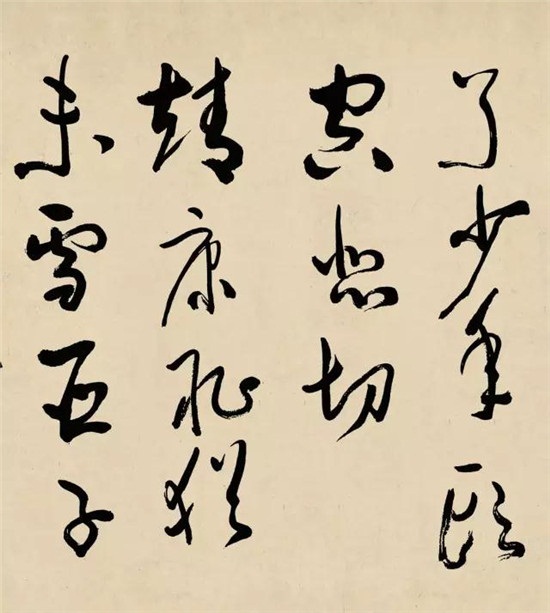 了少年頭
空悲切
靖康耻猶
未雪臣子